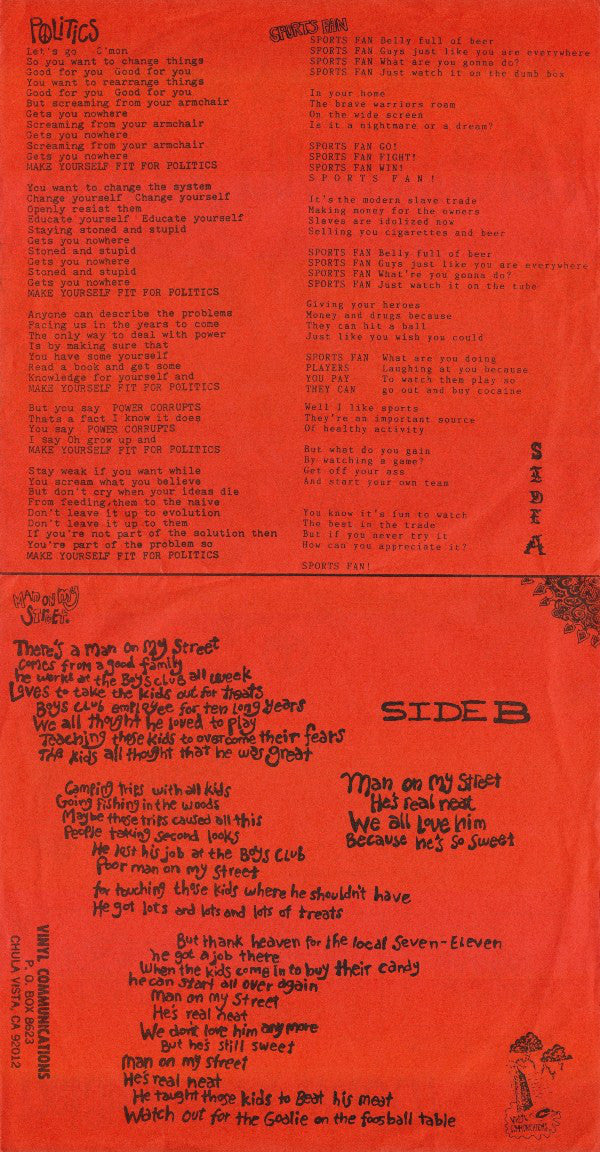 POLITICS
Let's go   C'mon
So you want to change things
Good for you  Good for you
You want to rearrange things
Good for you  Good for you
But screaming from your armchair
Gets you nowhere
Screaming from your armchair
Gets you nowhere
Screaming from your armchair
Gets you nowhere
MAKE YOURSELF FIT FOR POLITICS
You want to change the system
Change yourself  Change yourself
Openly resist them
Educate yourself  Educate yourself
Staying stoned and stupid
Gets you nowhere
Stoned and stupid
Gets you nowhere
Stoned and stupid
Gets you nowhere
MAKE YOURSELF FIT FOR POLITICS
Anyone can describe the problems
Facing us in the years to come
The only way to deal with power
Is by making sure that
You have some yourself
Read a book and get some
Knowledge for yourself and
MAKE YOURSELF FIT FOR POLITICS
But you say  POWER CORRUPTS
Thats a fact I know it does
You say  POWER CORRUPTS
I say Oh grow up and
MAKE YOURSELF FIT FOR POLITICS
Stay weak if you want while
You scream what you believe
But don't cry when your ideas die
From feeding them to the naive
Don't leave it up to evolution
Don't leave it up to them
If you're not part of the solution then
You're part of the problem so
MAKE YOURSELF FIT FOR POLITICS
SPORTS FAN
SPORTS FAN Belly full of beer
SPORTS FAN Guys just like you are everywhere
SPORTS FAN What are you gonna do?
SPORTS FAN Just watch it on the dumb box
In your home
The brave warriors roam
On the wide screen
Is it a nightmare or a dream?
SPORTS FAN GO!
SPORTS FAN FIGHT!
SPORTS FAN WIN!
S P O R T S  F A N !
It's the modern slave trade
Making money for the owners
Slaves are idolized now
Selling you cigarettes and beer
SPORTS FAN Belly full of beer
SPORTS FAN Guys just like you are everywhere
SPORTS FAN What're you gonna do?
SPORTS FAN Just watch it on the tube
Giving your heroes
Money and drugs because
They can hit a ball
Just like you wish you could
SPORTS FAN  What are you doing
PLAYERS     Laughing at you because
YOU PAY     To watch them play so
THEY CAN    go out and buy cocaine
Well I like sports
They're an important source
Of healthy activity
But what do you gain
By watching a game?
Get off your ass
And start your own team
You know it's fun to watch
The best in the trade
But if you never try it
How can you appreciate it?
SPORTS FAN!
SIDE A
MAN ON MY
STREET
There's a man on my street
comes from a good family
he works at the Boys club all week
Loves to take the kids out for treats
Boys club employee for ten long years
We all thought he loved to play
Teaching these kids to overcome their fears
The kids all thought that he was great
SIDE B
Camping trips with all kids
Going fishing in the woods
Maybe those trips caused all this
People taking second looks
He lost his job at the Boys Club
Poor man on my street
for touching those kids where he shouldn't have
He got lots and lots and lots of treats
Man on my street
He's real neat
We all love him
Because he's so sweet
But thank heaven for the local Seven-Eleven
he got a job there
When the kids come in to buy their candy
he can start all over again
Man on my street
He's real neat
We dont love him any more
But he's still sweet
man on my street
He's real neat
He taught those kids to Beat his meat
Watch out for the Goalie on the foosball table
VINYL COMMUNICATIONS
P. O. BOX 8623
CHULA VISTA, CA 92012
VINYL
COMMUNICATIONS